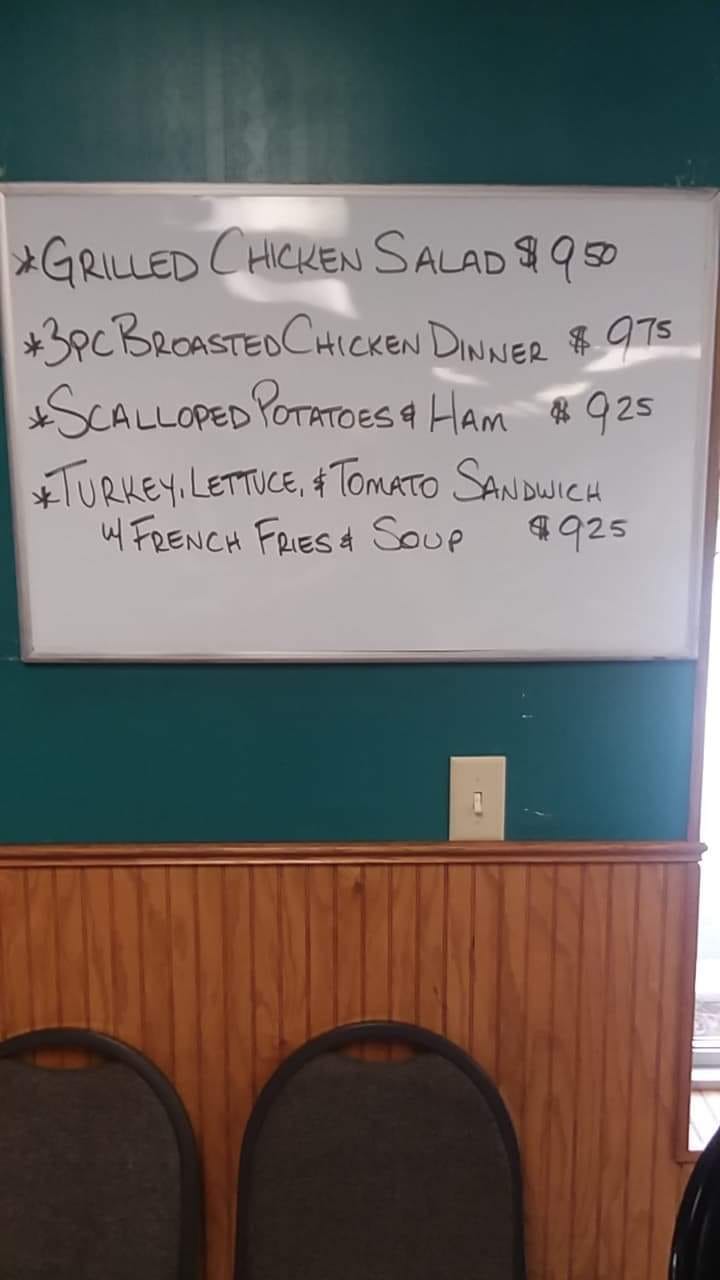 *GRILLED CHICKEN SALAD $9 50
*3PC BROASTED CHICKEN DINNER $ 9 75
*SCALLOPED POTATOES & HAM $ 9 25
*TURKEY, LETTUCE, & TOMATO SANDWICH
W/ FRENCH FRIES & SOUP $9 25